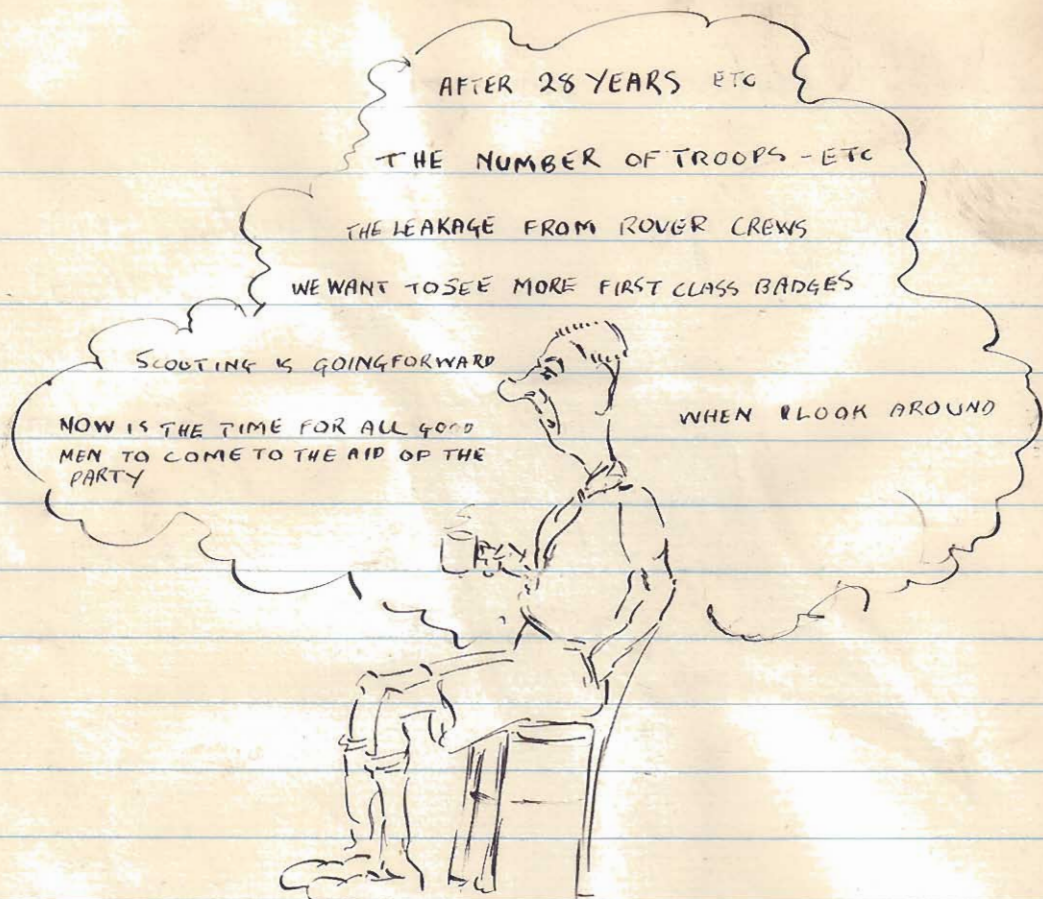 AFTER 28 YEARS ETC
THE NUMBER OF TROOPS - ETC
THE LEAKAGE FROM ROVER CREWS
WE WANT TO SEE MORE FIRST CLASS BADGES
SCOUTING IS GOING FORWARD
NOW IS THE TIME FOR ALL GOOD
MEN TO COME TO THE AID OF THE
PARTY
WHEN I LOOK AROUND